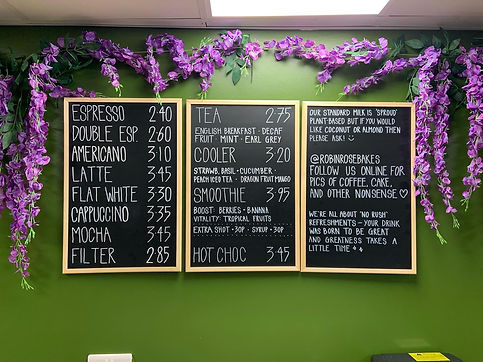 ESPRESSO 2.40
DOUBLE ESP. 2.60
AMERICANO 3.10
LATTE 3.45
FLAT WHITE 3.30
CAPPUCCINO 3.35
MOCHA 3.45
FILTER 2.85
TEA 2.75
ENGLISH BREAKFAST • DECAF
FRUIT • MINT • EARL GREY
COOLER 3.20
STRAWB. BASIL • CUCUMBER •
PEACH ICED TEA • DRAGON FRUIT MANGO
SMOOTHIE 3.95
BOOST: BERRIES • BANANA
VITALITY: TROPICAL FRUITS
EXTRA SHOT • 30P • SYRUP • 30P
HOT CHOC 3.45
OUR STANDARD MILK IS 'SPROUD'
PLANT-BASED BUT IF YOU WOULD
LIKE COCONUT OR ALMOND THEN
PLEASE ASK! :)
@ROBINROSEBAKES
FOLLOW US ONLINE FOR
PICS OF COFFEE, CAKE,
AND OTHER NONSENSE ♡
WE'RE ALL ABOUT 'NO RUSH'
REFRESHMENTS – YOUR DRINK
WAS BORN TO BE GREAT
AND GREATNESS TAKES A
LITTLE TIME